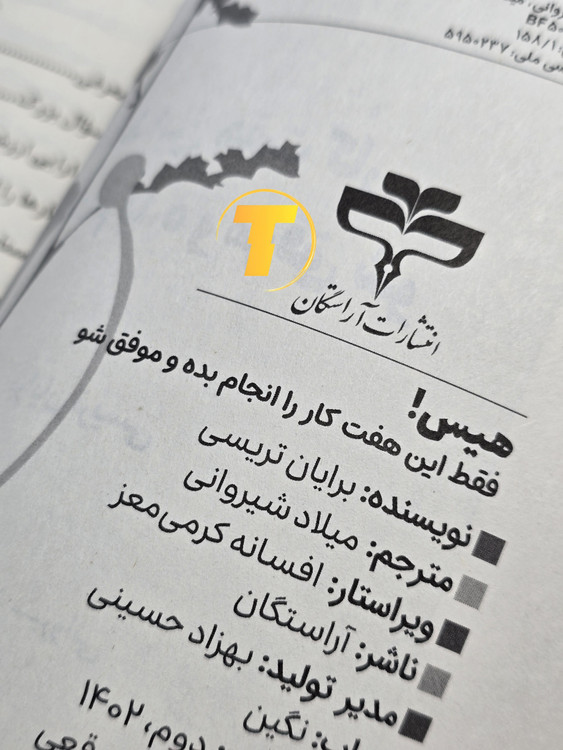 BF۵۰
۱۵۸/۱
ملی: ۵۹۵۰۲۳۷
T
انتشارات آراستگان
هیس!
فقط این هفت کار را انجام بده و موفق شو
نویسنده: برایان تریسی
مترجم: میلاد شیروانی
ویراستار: افسانه کرمی‌معز
ناشر: آراستگان
مدیر تولید: بهزاد حسینی
نگین
دوم، ۱۴۰۲